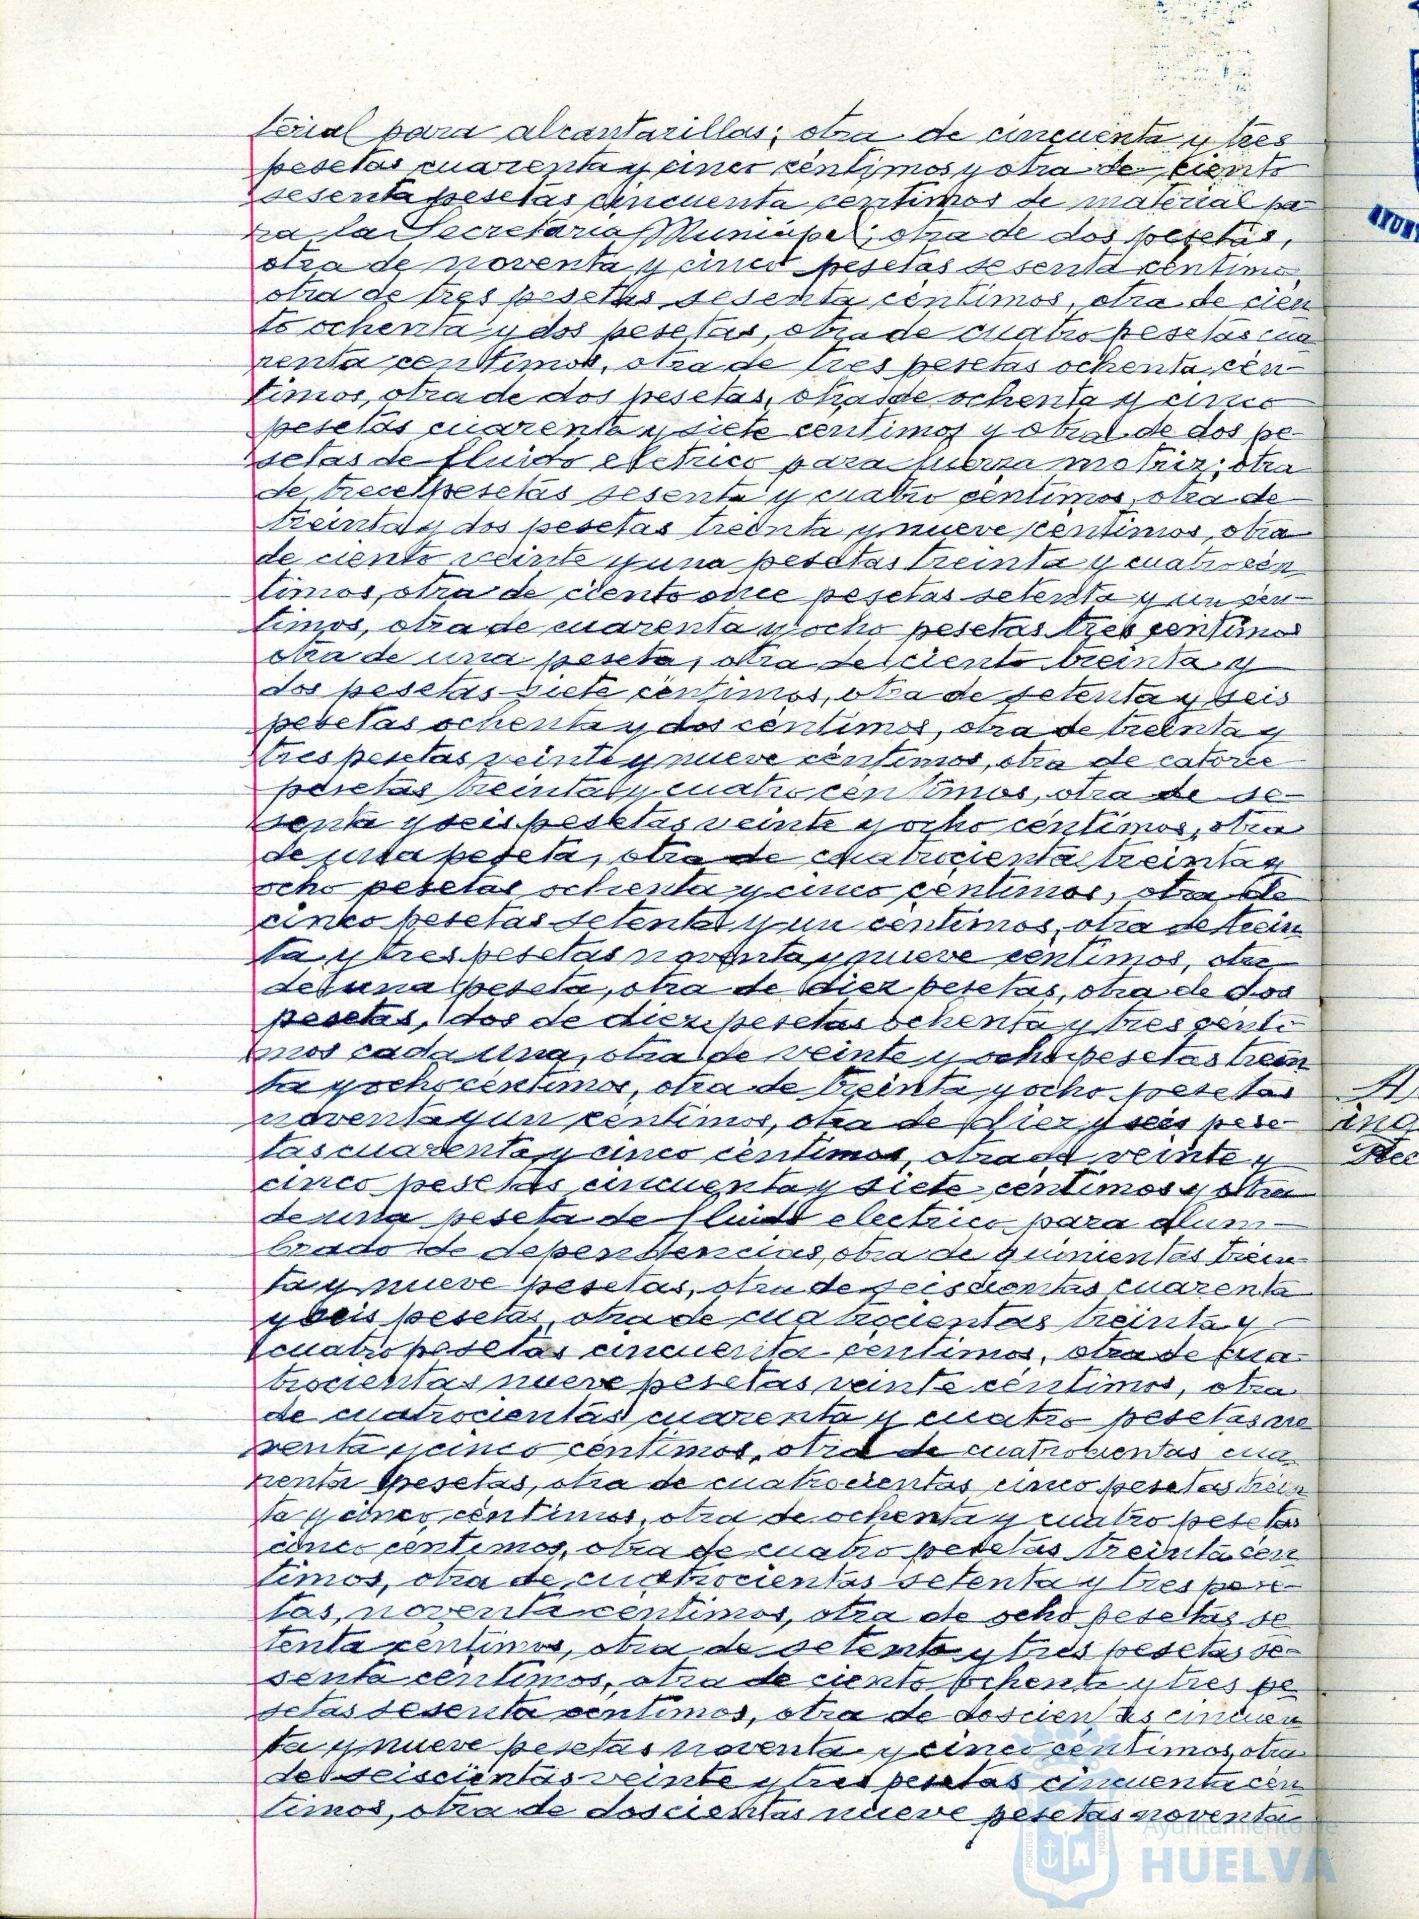 terial para alcantarillas; otra de cincuenta y tres
pesetas cuarenta y cinco céntimos y otra de ciento
sesenta pesetas cincuenta centimos de material pa-
ra la Secretaria Municipal; otra de dos pesetas,
otra de noventa y cinco pesetas sesenta centimo
otra de tres pesetas sesenta céntimos, otra de cien
to ochenta y dos pesetas, otra de cuatro pesetas cua
renta centimos, otra de tres pesetas ochenta cén-
timos, otra de dos pesetas, otra de ochenta y cinco
pesetas cuarenta y siete centimos y otra de dos pe-
setas de fluido eletrico para fuerza motriz; otra
de trece pesetas sesenta y cuatro céntimos, otra de
treinta y dos pesetas treinta y nueve céntimos, otra
de ciento veinte y una pesetas treinta y cuatro cén
timos, otra de ciento once pesetas setenta y un cén-
timos, otra de cuarenta y ocho pesetas tres centimos
otra de una peseta, otra de ciento treinta y
dos pesetas siete céntimos, otra de setenta y seis
pesetas ochenta y dos céntimos, otra de treinta y
tres pesetas veinte y nueve céntimos, otra de catorce
pesetas treinta y cuatro céntimos, otra de se-
senta y seis pesetas veinte y ocho céntimos, otra
de una peseta, otra de cuatrocientas treinta y
ocho pesetas ochenta y cinco céntimos, otra de
cinco pesetas setenta y un céntimos, otra de trein
ta y tres pesetas noventa y nueve céntimos, otra
de una peseta, otra de diez pesetas, otra de dos
pesetas, dos de diez pesetas ochenta y tres cénti-
mos cada una, otra de veinte y ocho pesetas trein
ta y ocho centimos, otra de treinta y ocho pesetas
noventa y un céntimos, otra de diez y seis pese-
tas cuarenta y cinco céntimos, otra de veinte y
cinco pesetas cincuenta y siete céntimos y otra
de una peseta de fluido electrico para alum-
brado de dependencias, otra de quinientas trein-
ta y nueve pesetas, otra de seiscientas cuarenta
y seis pesetas, otra de cuatrocientas treinta y
cuatro pesetas cincuenta céntimos, otra de cua-
trocientas nueve pesetas veinte céntimos, otra
de cuatrocientas cuarenta y cuatro pesetas no-
venta y cinco céntimos, otra de cuatrocientas cua
renta pesetas, otra de cuatrocientas cinco pesetas trein
ta y cinco céntimos, otra de ochenta y cuatro pesetas
cinco céntimos, otra de cuatro pesetas treinta cén
timos, otra de cuatrocientas setenta y tres pese-
tas, noventa céntimos, otra de ocho pesetas se
tenta céntimos, otra de setenta y tres pesetas se-
senta centimos, otra de ciento ochenta y tres pe
setas sesenta centimos, otra de doscientas cincuen
ta y nueve pesetas noventa y cinco céntimos, otra
de seiscientas veinte y tres pesetas cincuenta cén
timos, otra de doscientas nueve pesetas noventa
Ayuntamiento de
HUELVA